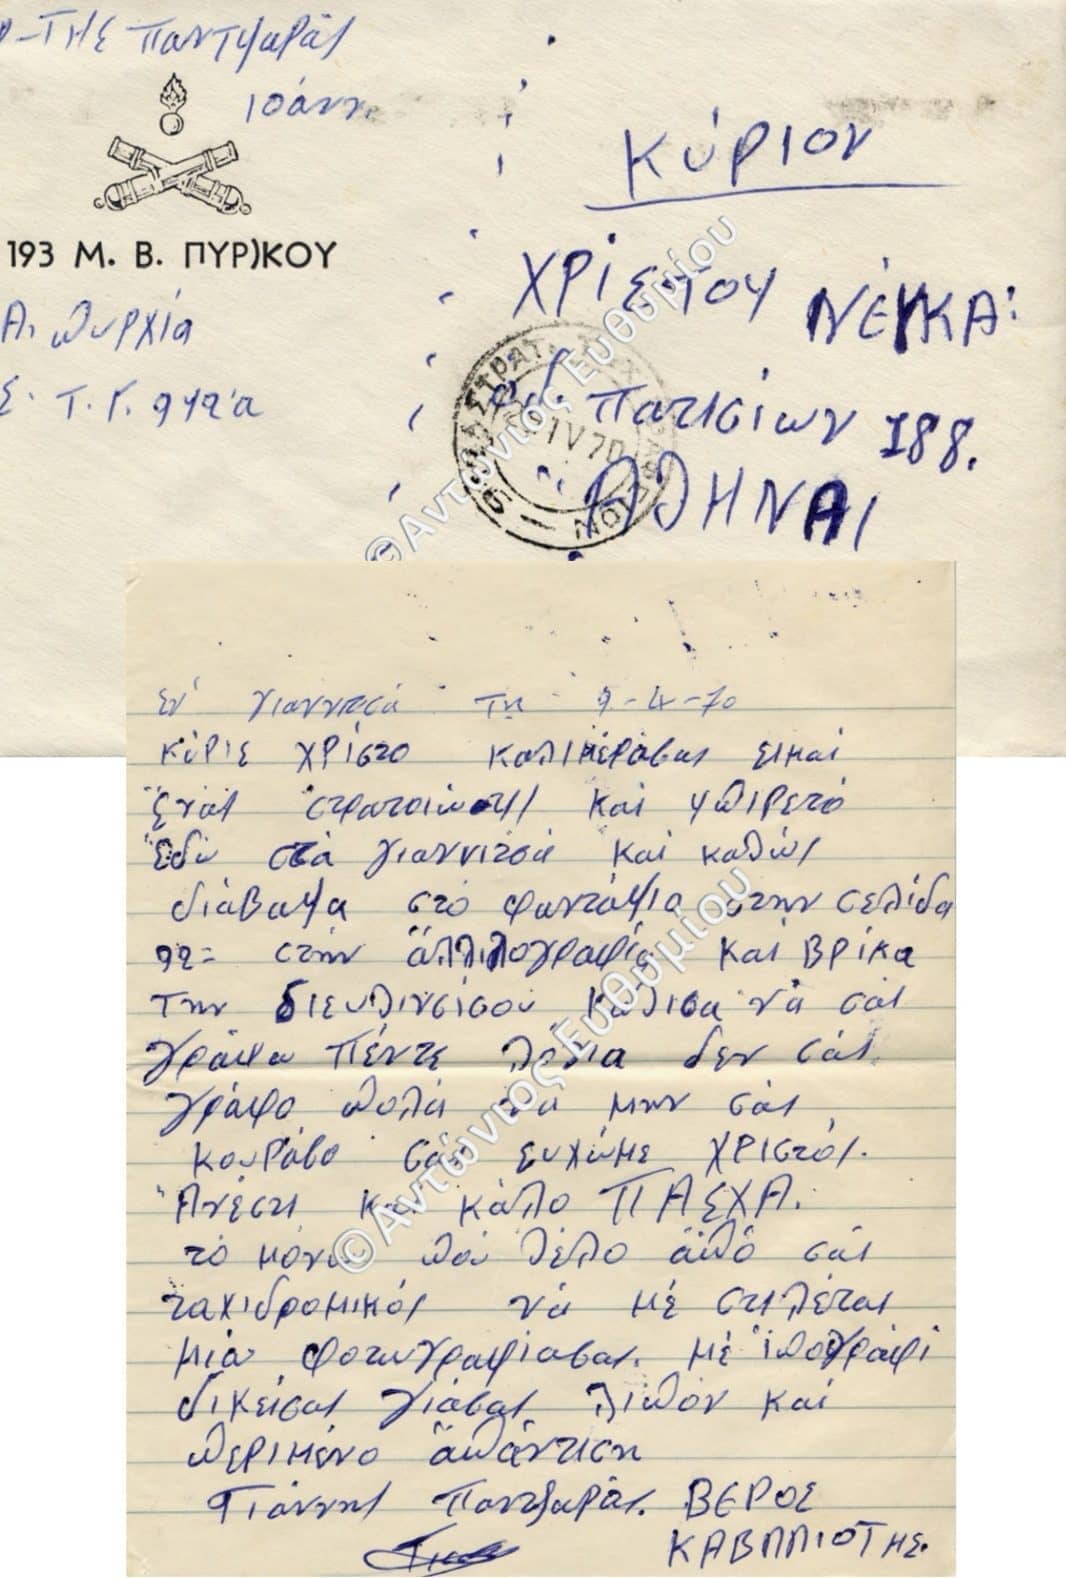 -ΤΗΣ Πανταζαράς
Ιοάνν.
193 Μ. Β. ΠΥΡ)ΚΟΥ
Α. πυρχία
Σ. Τ. Γ. 992α
Κύριον
ΧΡίΣΤΟΥ ΝΕΓΚΑ:
οδ. Πατισίων 188.
ΑΘΗΝΑΙ
ΣΤΡΑΤ. ΤΑΧ
IV 70
© Αντώνιος Ευθυμίου
Εν γιαννιτσά τη 9-4-70
Κύριε χρίστο καλιμέρασας ειμαί
Ένας στρατιώτης και υπιρετό
Έδώ στά γιαννιτσά και καθώς
διάβαζα στό φαντάζιο στην σελίδα
92= στήν άλλιλογραφία και βρίκα
την διευθινσίσου κάθισα νά σάς
γράψω πέντε λόγια δεν σάς
γράφο πολά να μην σάς
κουράσο σάς ευχώμε χριστός.
Άνέστι και κάλο ΠΑΣΧΑ.
τό μόνο πού θέλο άπό σάς
ταχιδρομικός νά μέ στιλέται
μία φοτογραφίασας. μέ ιπογράφί
δικείσας γιάσας λιπόν καί
περιμένο άπάντιση
Γιάννης Πανταζαράς. ΒΕΡΟΣ
ΚΑΒΑΛΙΟΤΗΣ.
© Αντώνιος Ευθυμίου